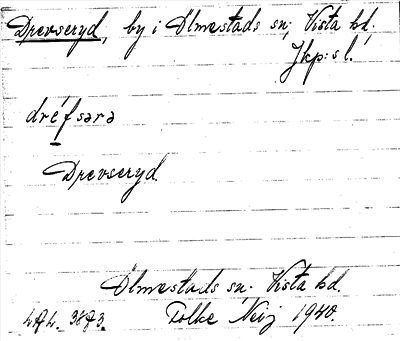 Drevseryd, by i Ölmestads sn; Vista hd.
Jkp:s l.
dréfsərə
Drevseryd.
Ölmestads sn. Vista hd.
Folke Neij 1940.